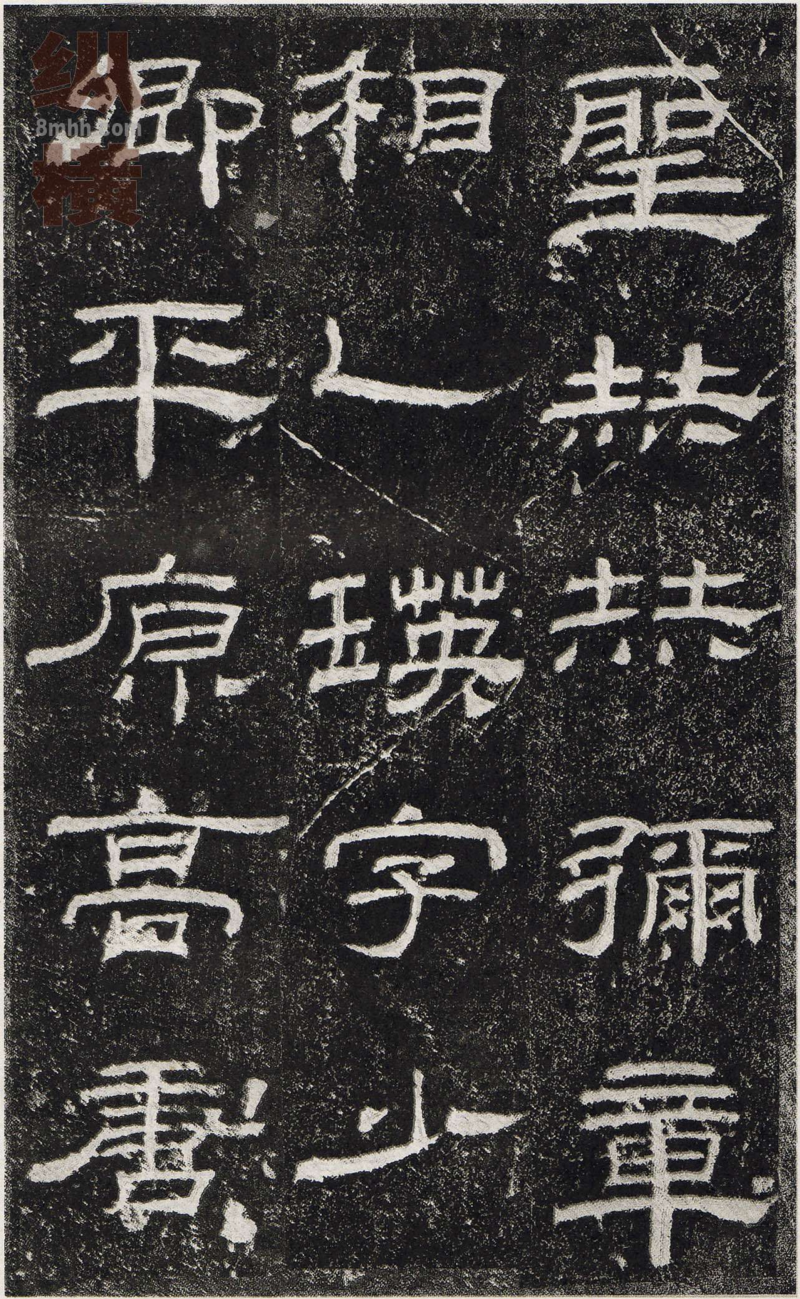 聖赫赫彌章
相乙瑛字少
卿平原高唐
纵横
8mhh.com